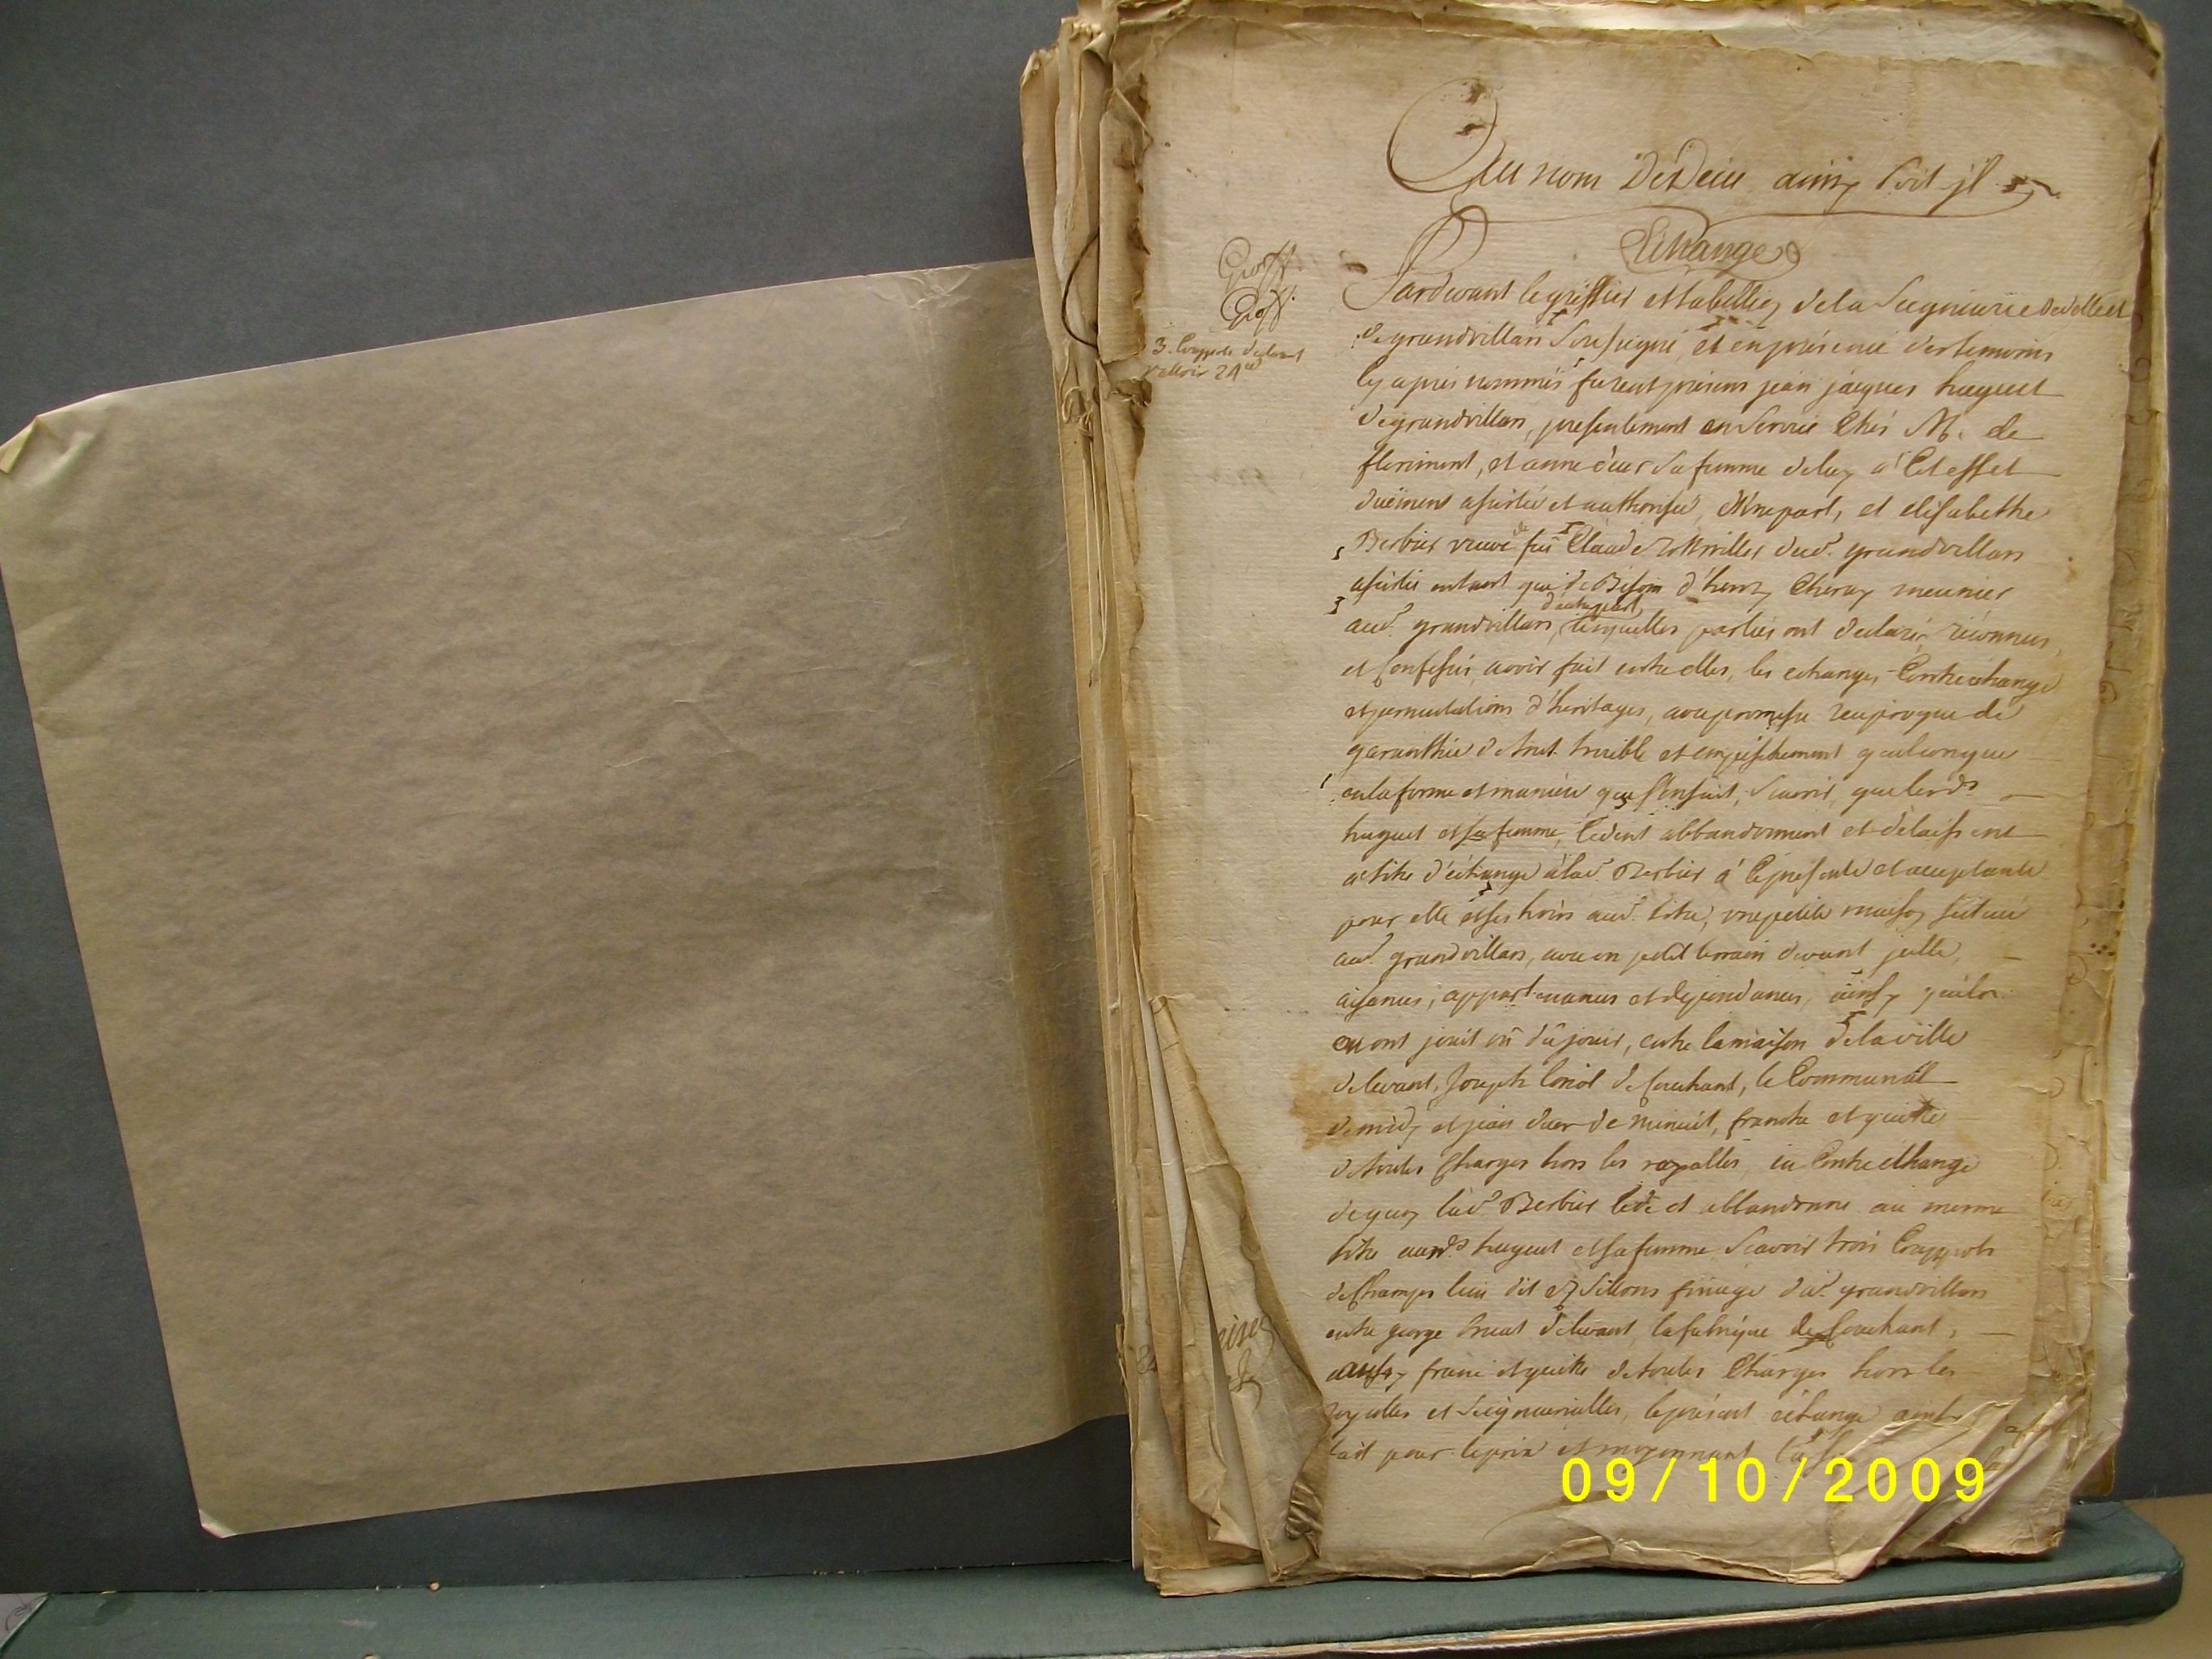 Au nom De Deiu ainsy Soit jl
Echange
Gross.
Gross.
3. Coupots
valloir 24
Pardevant le greffier et tabellion de la Seigneurie de delle et
de grandvillars Soussigné, et en présence des temoins
cy après nommés furent présens jean jacques huguet
de grandvillars, presentement en Service Chés M. de
florimont, et anne duer sa femme de luy à Cet effet
duëment assistée et authorisée, d'une part, et elisabethe
Berbier veuve de feu Claude dud. grandvillars
assistée entant que de Besoin d'henry Cheray meunier
aud. grandvillars, d'autre part, lesquelles parties ont declaré, réconnus,
et Confessés, avoir fait entre elles, les echanges Contrechange
et permutations d'héritages, avec promesse réciproque de
garanthie de tout trouble et empéschement quelconque
en la forme et maniere que s'ensuit, Scavoir, que lesds
huguet et sa femme, Cedent abbandonnent et délaissent
à titre d'échange à lad. Berbier à Ce présente et acceptante
pour elle et ses hoirs aud. titre, une petite maison scituée
aud. grandvillars, avec un petit terrain devant jcelle,
aisances, appartenances et dépendances, ainsy qu'ils
en ont jouit ou dû jouir, entre la maison de la ville
de levant, Joseph Coriol de Couchant, le Communal
de midy et jean duer de minuit, franche et quitte
de toutes Charges hors les royalles, en Contre échange
de quoy lad. Berbier Cede et abbandonne au meme
titre auxds huguet et sa femme, Scavoir trois Coupots
de Champs lieu dit es Sillons finage dud. grandvillars
entre george bruat de levant, la fabrique de Couchant,
aussy franc et quitte de toutes Charges hors les
royalles et Seigneurialles, le présent échange ainsy
fait pour le prix et moyennant la
09/10/2009